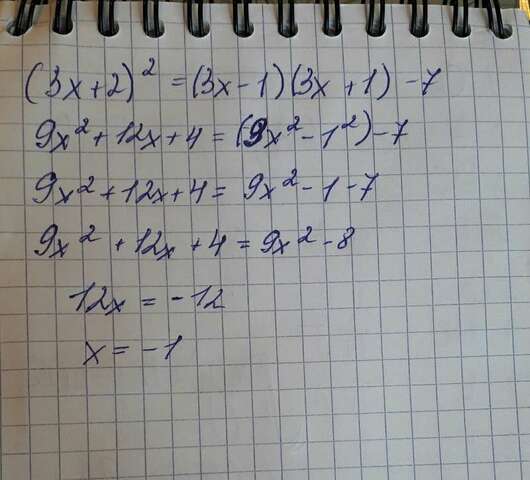 (3x+2)² = (3x-1)(3x+1) -7
9x² + 12x + 4 = (9x² - 1²) - 7
9x² + 12x + 4 = 9x² - 1 - 7
9x² + 12x + 4 = 9x² - 8
12x = -12
x = -1